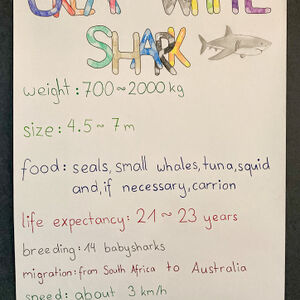 GREAT WHITE
SHARK
weight: 700~2000 kg
size: 4.5 ~ 7 m
food: seals, small whales, tuna, squid
and, if necessary, carrion
life expectancy: 21 ~ 23 years
breeding: 14 babysharks
migration: from South Africa to Australia
speed: about 3 km/h